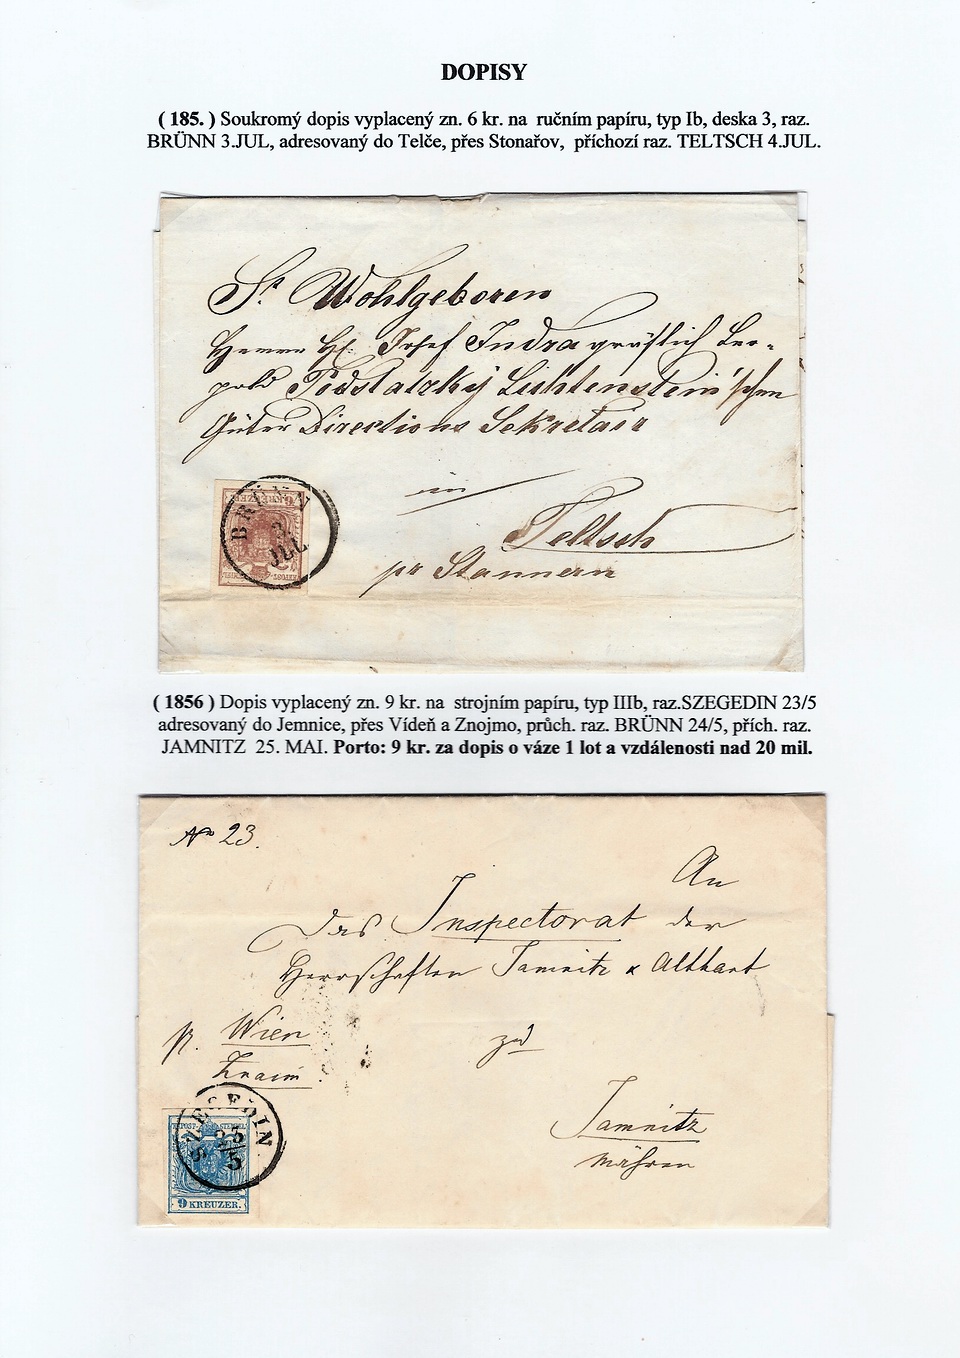 DOPISY
( 185. ) Soukromý dopis vyplacený zn. 6 kr. na ručním papíru, typ Ib, deska 3, raz.
BRÜNN 3.JUL, adresovaný do Telče, přes Stonařov, příchozí raz. TELTSCH 4.JUL.
Sr. Wohlgeboren
Herrn H. Josef Indra gräflich Leo-
pold Podstatzky Lichtenstein'schen
Güter Directions Sekretair
in
Teltsch
pr Stannern
BRÜNN
3.
JUL
( 1856 ) Dopis vyplacený zn. 9 kr. na strojním papíru, typ IIIb, raz.SZEGEDIN 23/5
adresovaný do Jemnice, přes Vídeň a Znojmo, průch. raz. BRÜNN 24/5, přích. raz.
JAMNITZ 25. MAI. Porto: 9 kr. za dopis o váze 1 lot a vzdálenosti nad 20 mil.
No 23.
An
Das Inspectorat der
Herrschaften Jamnitz & Althart
pr. Wien
Znaim.
zu
Jamnitz
Mähren
SZEGEDIN
23
5
9 KREUZER.